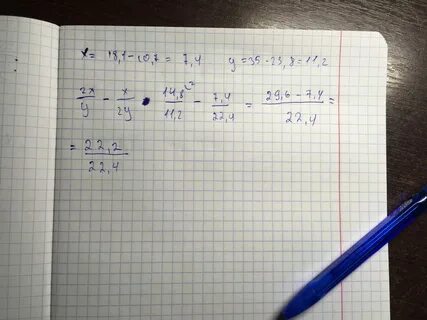 x = 18,1 - 10,7 = 7,4 y = 35 - 23,8 = 11,2
2x/y - x/2y • 14,8/11,2 \2 - 7,4/22,4 = 29,6 - 7,4/22,4 =
= 22,2/22,4